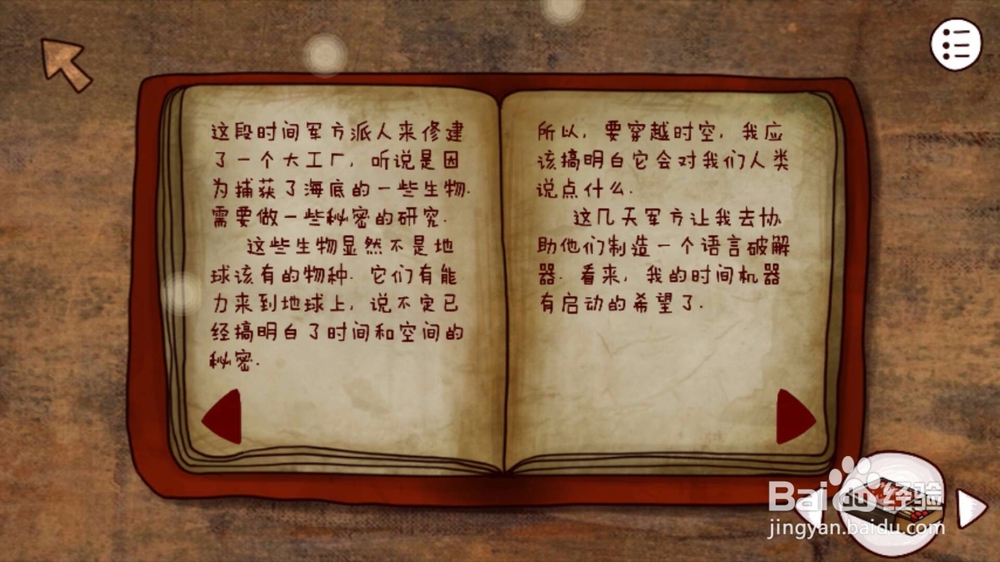 这段时间军方派人来修建
了一个大工厂, 听说是因
为捕获了海底的一些生物.
需要做一些秘密的研究.
这些生物显然不是地
球该有的物种. 它们有能
力来到地球上, 说不定已
经搞明白了时间和空间的
秘密.
所以, 要穿越时空, 我应
该搞明白它会对我们人类
说点什么.
这几天军方让我去协
助他们制造一个语言破解
器. 看来, 我的时间机器
有启动的希望了.
Bai 经验
jingyan.baidu.com